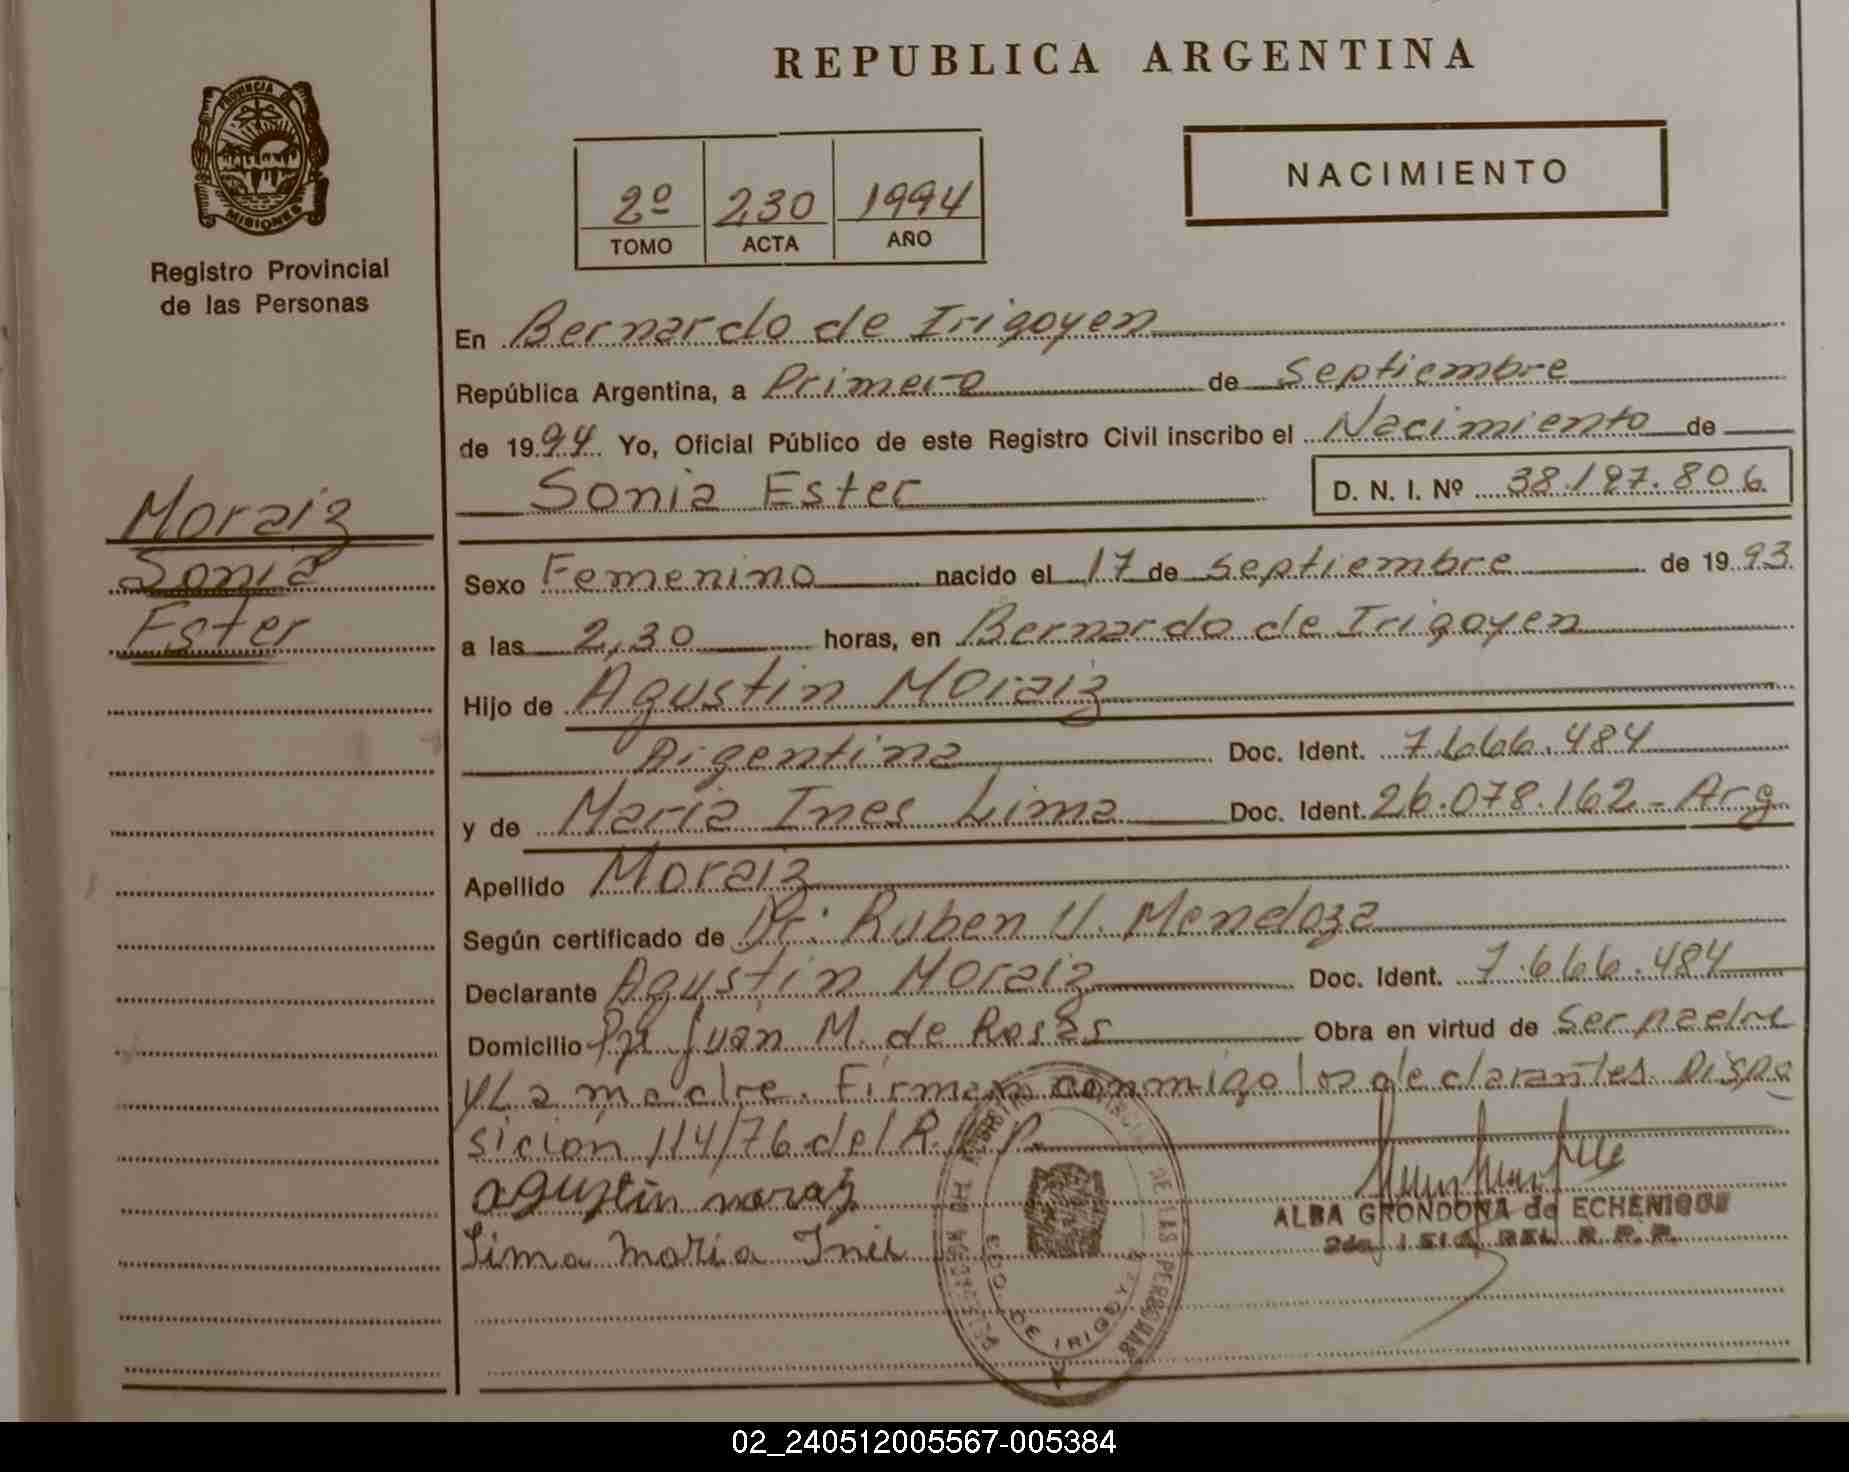 REPUBLICA ARGENTINA
PROVINCIA DE
MISIONES
Registro Provincial
de las Personas
2º 230 1994
TOMO ACTA AÑO
NACIMIENTO
En Bernardo de Irigoyen
República Argentina, a Primero de Septiembre
de 1994 Yo, Oficial Público de este Registro Civil inscribo el Nacimiento de
Sonia Ester D. N. I. Nº 38.187.806
Moraiz
Sonia
Ester
Sexo Femenino nacido el 17 de Septiembre de 1993
a las 2,30 horas, en Bernardo de Irigoyen
Hijo de Agustin Moraiz
Argentina Doc. Ident. 7.666.484
y de Maria Ines Lima Doc. Ident. 26.078.162 - Arg
Apellido Moraiz
Según certificado de Dr. Ruben U. Mendoza
Declarante Agustin Moraiz Doc. Ident. 7.666.484
Domicilio Pje Juan M. de Rosas Obra en virtud de Ser padre
y La madre. Firman conmigo los declarantes. Dispo
sición 114/76 del R.P.P.
agustin moraiz
Lima Maria Ines
DE LAS PERSONAS
BDO. DE IRIGOYEN
ALBA GRONDONA de ECHENIQUE
DEL R. P. P.
02_240512005567-005384